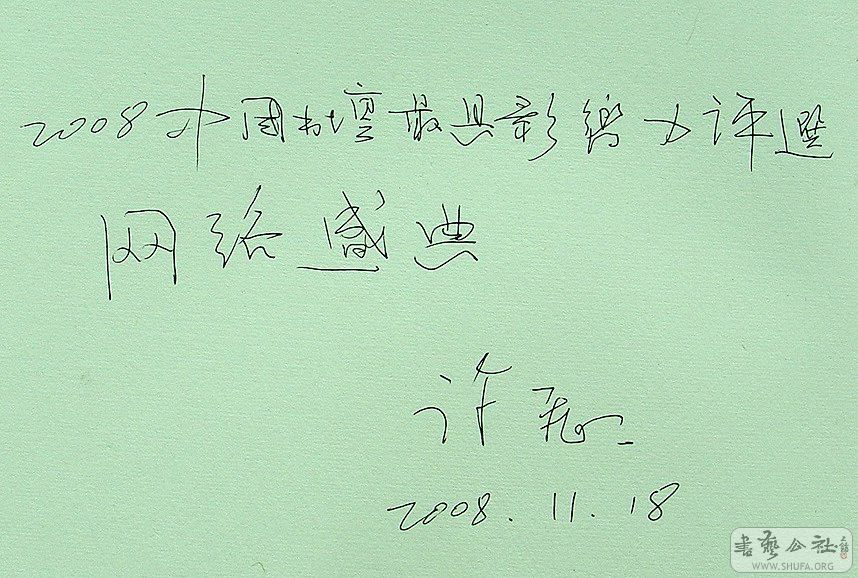 2008中国书壇最具影響力评選
网络盛典
许
2008.11.18
書藝公社
WWW.SHUFA.ORG